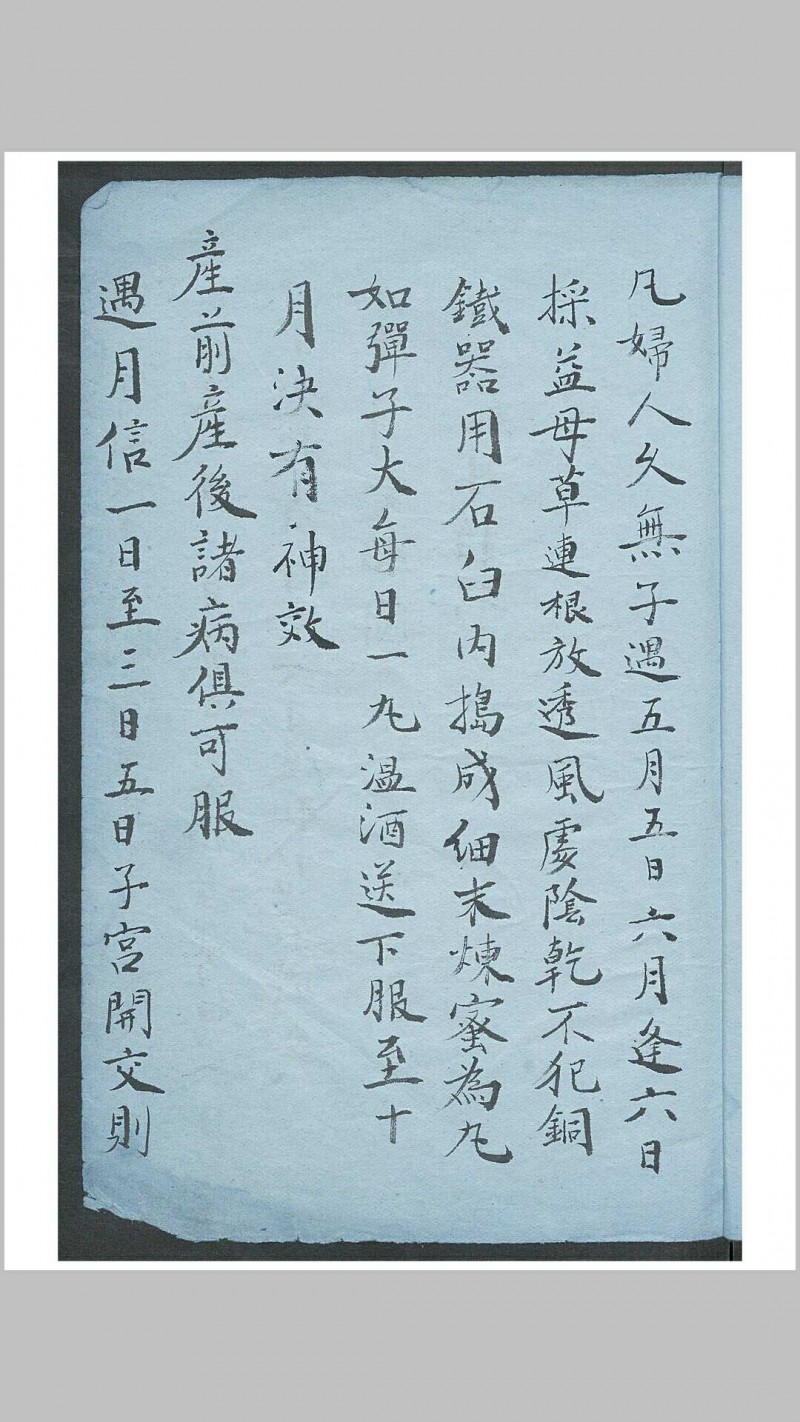 凡婦人久無子遇五月五日六月逢六日
採益母草連根放透風處陰乾不犯銅
鐵器用石臼內搗成細末煉蜜為丸
如彈子大每日一丸温酒送下服至十
月決有神效
產前產後諸病俱可服
遇月信一日至三日五日子宮開交則